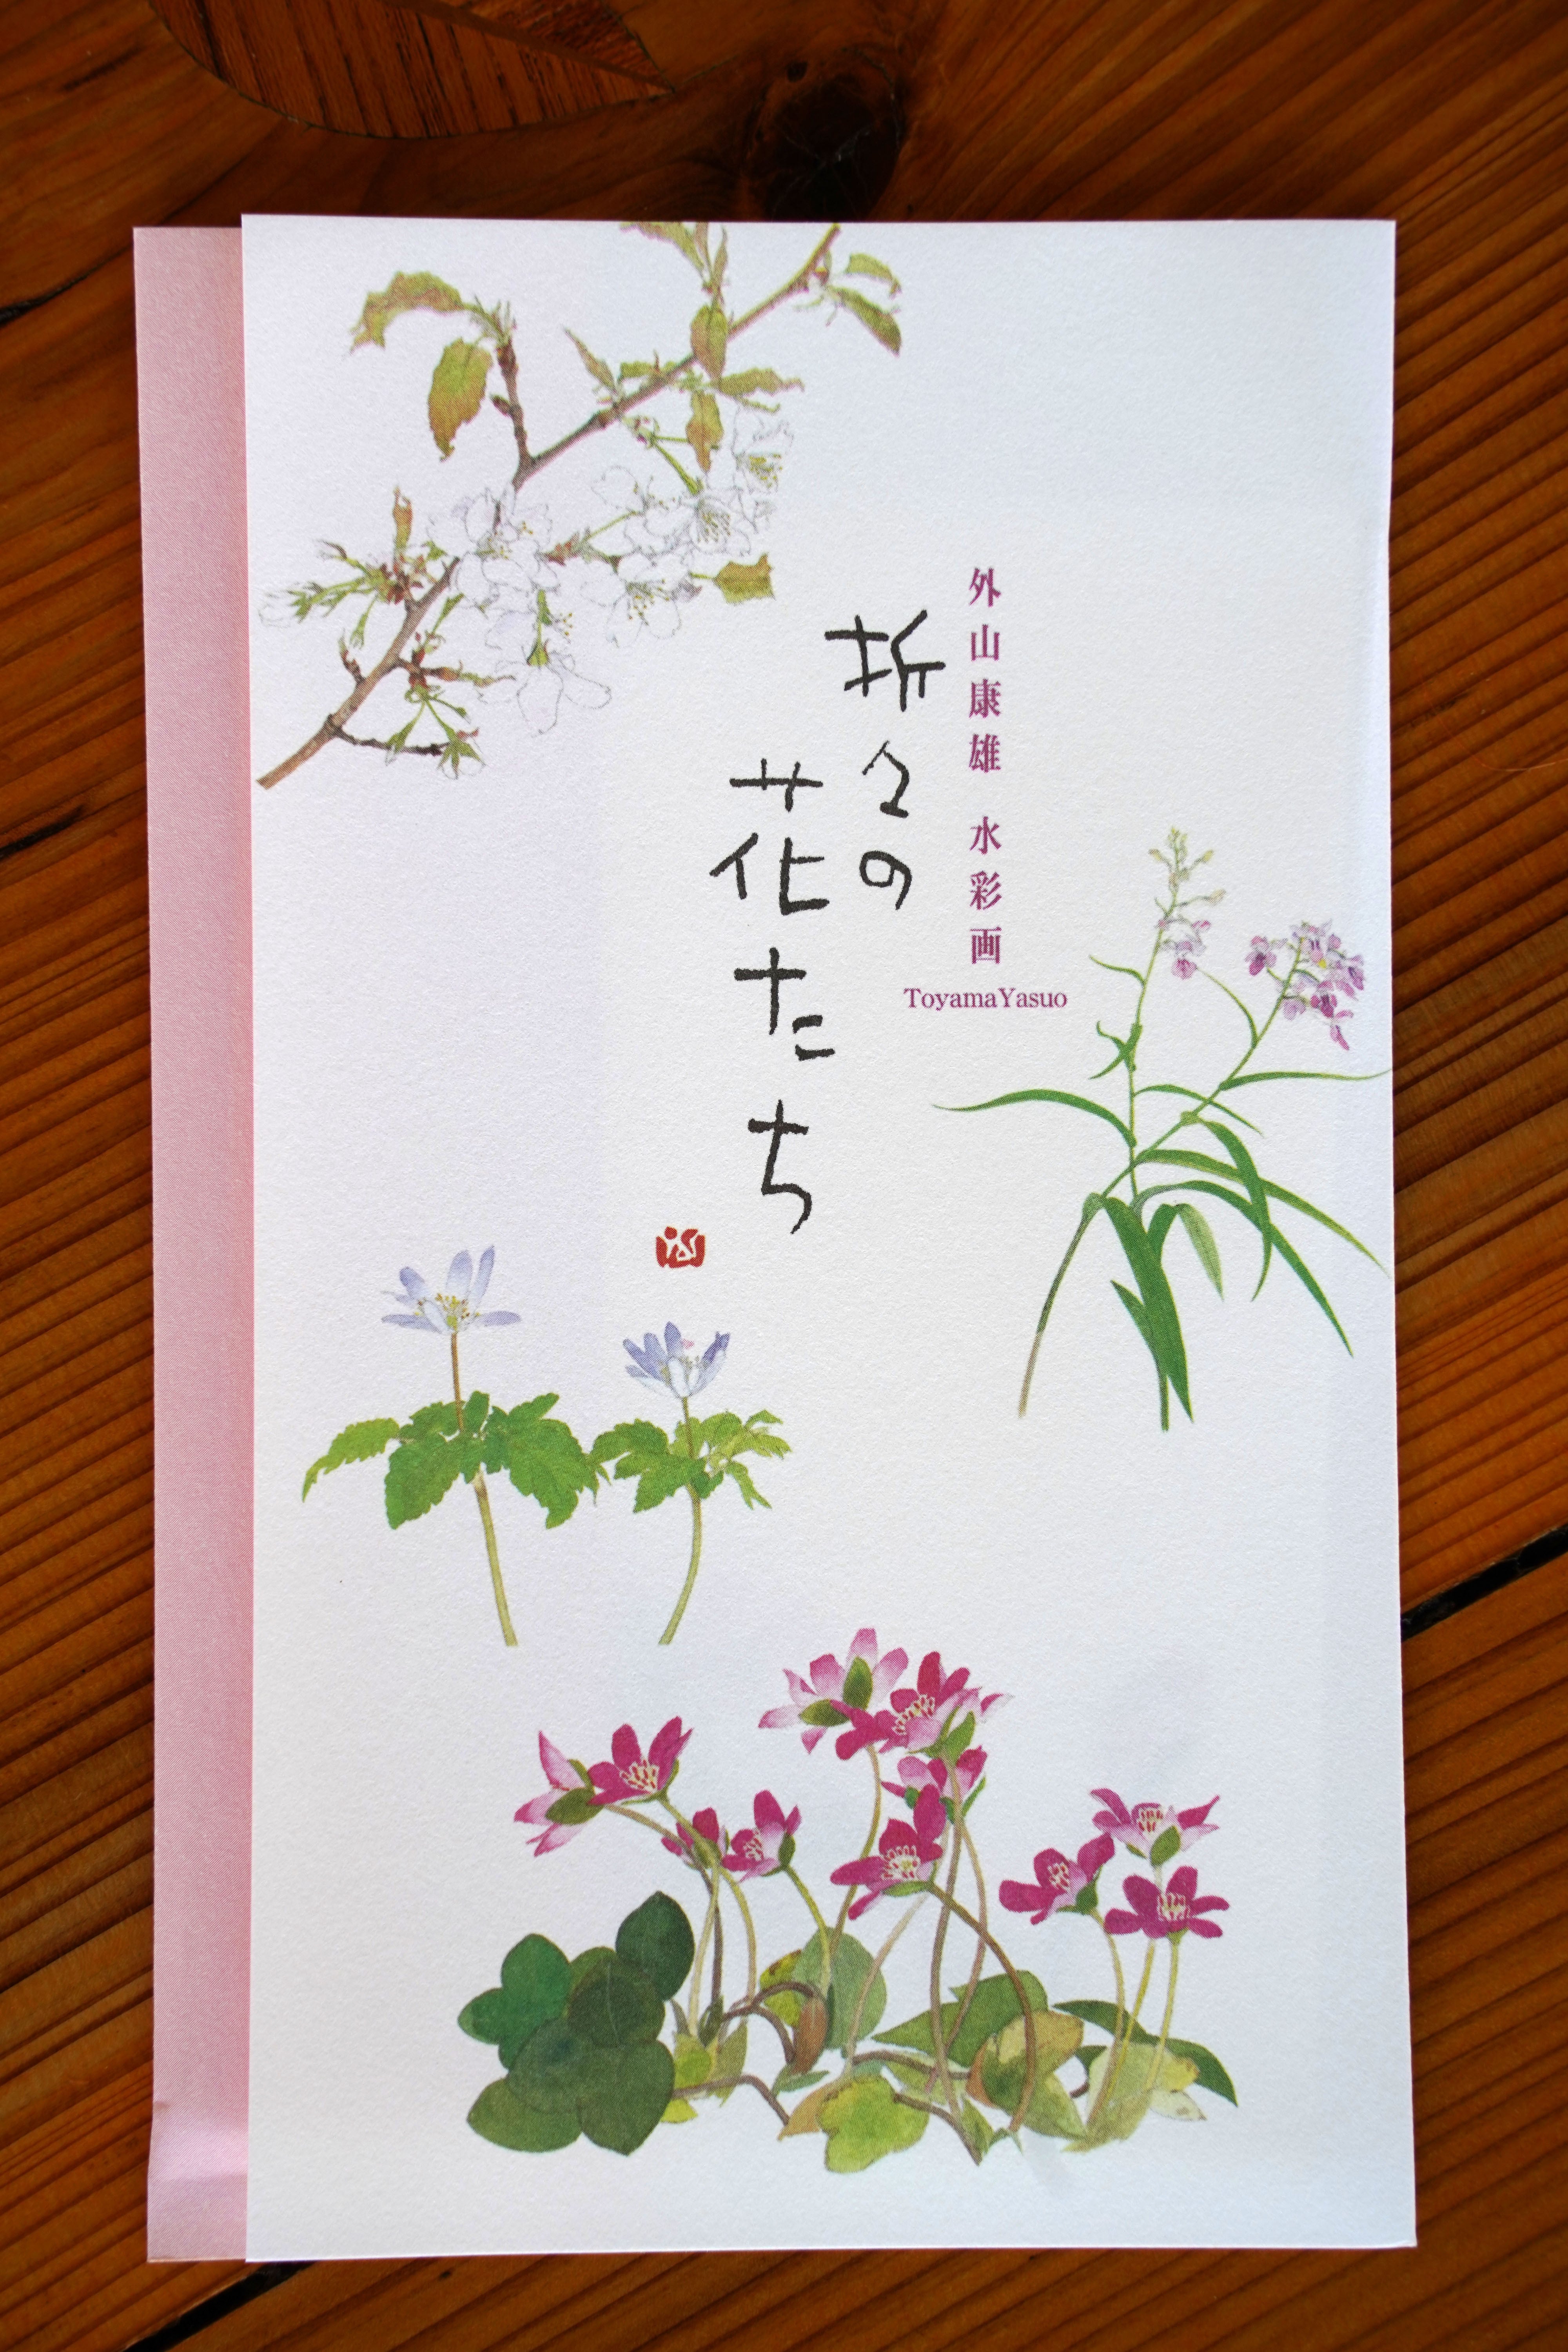 外山康雄 水彩画
ToyamaYasuo
折々の
花たち